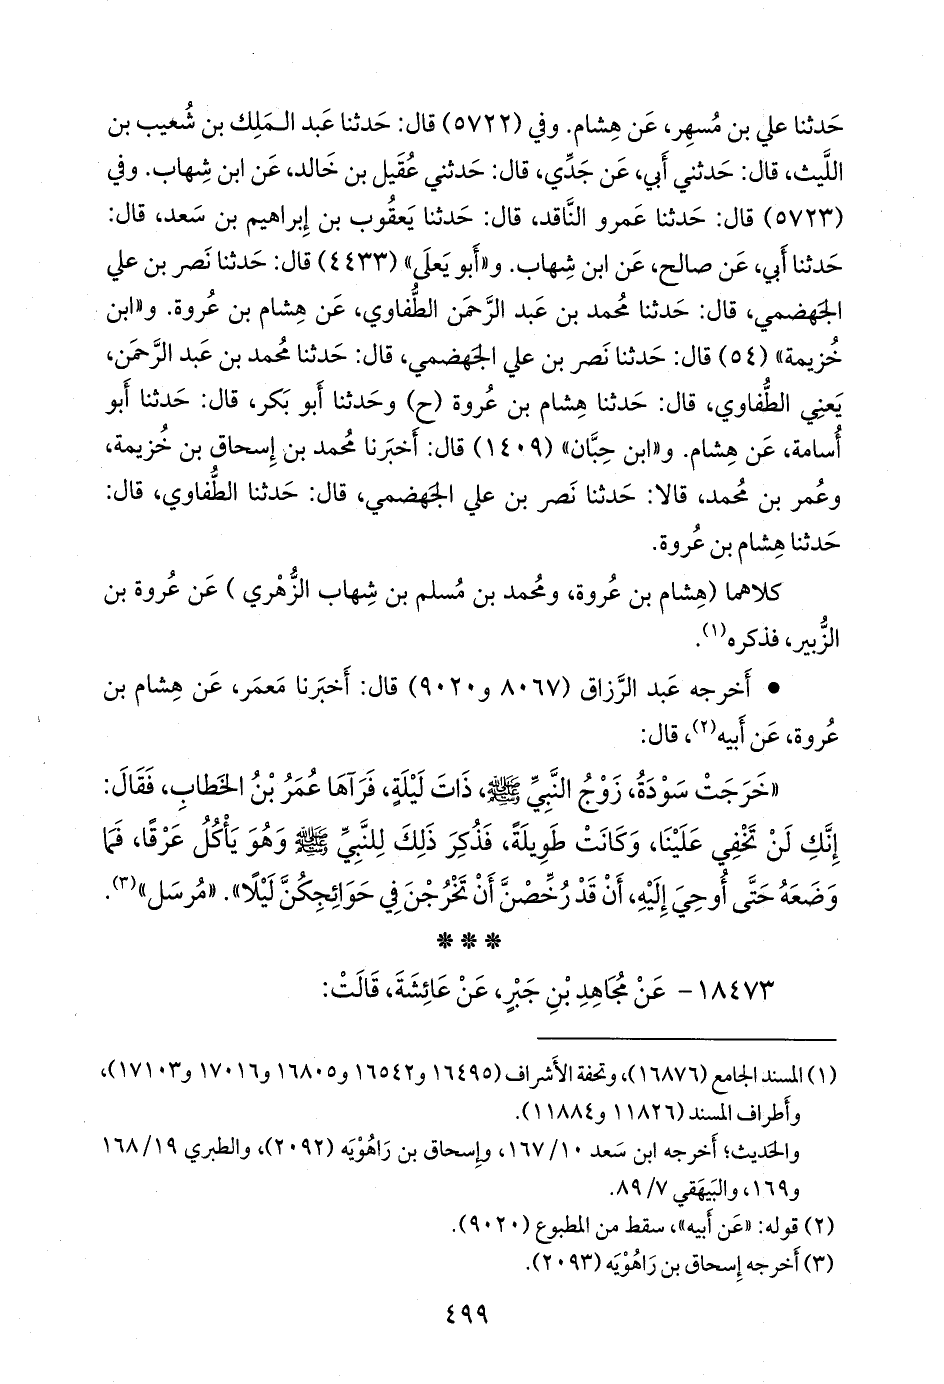 حَدثنا علي بن مُسهِر، عَن هِشام. وفي (٥٧٢٢) قال: حَدثنا عَبد الـمَلِك بن شُعيب بن
اللَّيث، قال: حَدثني أَبي، عَن جَدِّي، قال: حَدثني عُقَيل بن خَالد، عَن ابن شِهاب. وفي
(٥٧٢٣) قال: حَدثنا عَمرو النَّاقد، قال: حَدثنا يَعقُوب بن إِبراهيم بن سَعد، قال:
حَدثنا أَبي، عَن صالح، عَن ابن شِهاب. و«أَبو يَعلَى» (٤٤٣٣) قال: حَدثنا نَصر بن علي
الجَهضمي، قال: حَدثنا مُحمد بن عَبد الرَّحمَن الطُّفاوي، عَن هِشام بن عُروة. و«ابن
خُزيمة» (٥٤) قال: حَدثنا نَصر بن علي الجَهضمي، قال: حَدثنا مُحمد بن عَبد الرَّحمَن،
يَعنِي الطُّفاوي، قال: حَدثنا هِشام بن عُروة (ح) وحَدثنا أَبو بَكر، قال: حَدثنا أَبو
أُسامة، عَن هِشام. و«ابن حِبَّان» (١٤٠٩) قال: أَخبَرنا مُحمد بن إِسحاق بن خُزيمة،
وعُمر بن مُحمد، قالا: حَدثنا نَصر بن علي الجَهضمي، قال: حَدثنا الطُّفاوي، قال:
حَدثنا هِشام بن عُروة.
كلاهما (هِشام بن عُروة، ومُحمد بن مُسلم بن شِهاب الزُّهْري ) عَن عُروة بن
الزُّبير، فذكره(١).
• أَخرجه عَبد الرَّزاق (٨٠٦٧ و٩٠٢٠) قال: أَخبَرنا مَعمَر، عَن هِشام بن
عُروة، عَن أَبيه(٢)، قال:
«خَرَجَتْ سَوْدَةُ، زَوْجُ النَّبِيِّ ﷺ، ذَاتَ لَيْلَةٍ، فَرَآهَا عُمَرُ بْنُ الخَطابِ، فَقَالَ:
إِنَّكِ لَنْ تَخْفِي عَلَيْنَا، وَكَانَتْ طَوِيلَةً، فَذُكِرَ ذَلِكَ لِلنَّبِيِّ ﷺ وَهُوَ يَأْكُلُ عَرْقًا، فَمَا
وَضَعَهُ حَتَّى أُوحِيَ إِلَيْهِ، أَنْ قَدْ رُخِّصْنَ أَنْ تَخْرُجْنَ فِي حَوَائِجِكُنَّ لَيْلًا». «مُرسَل»(٣).
* * *
١٨٤٧٣- عَنْ مُجَاهِدِ بْنِ جَبْرٍ، عَنْ عَائِشَةَ، قَالَتْ:
(١) المسند الجامع (١٦٨٧٦)، وتحفة الأَشراف (١٦٤٩٥ و١٦٥٤٢ و١٦٨٠٥ و١٧٠١٦ و١٧١٠٣)،
وأَطراف المسند (١١٨٢٦ و١١٨٨٤).
والحَديث؛ أَخرجه ابن سَعد ١٦٧/١٠، وإِسحاق بن رَاهُوْيَه (٢٠٩٢)، والطبري ١٦٨/١٩
و١٦٩، والبَيهَقي ٨٩/٧.
(٢) قوله: «عَن أَبيه»، سقط من المطبوع (٩٠٢٠).
(٣) أَخرجه إِسحاق بن رَاهُوْيَه (٢٠٩٣).
٤٩٩